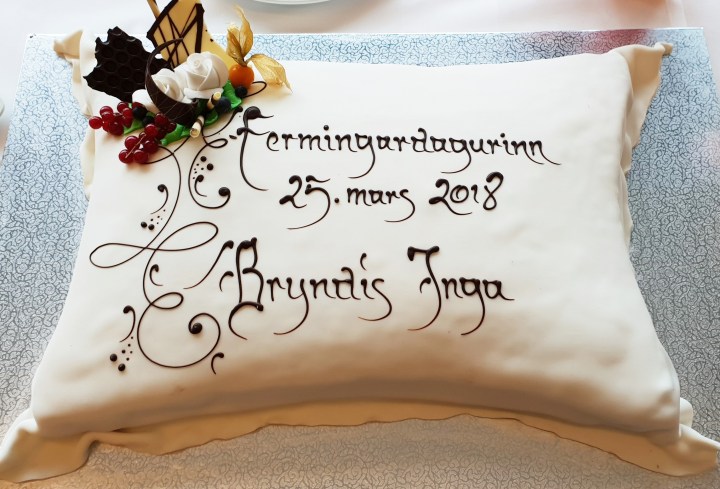 Fermingardagurinn
25. mars 2018
Bryndís Inga